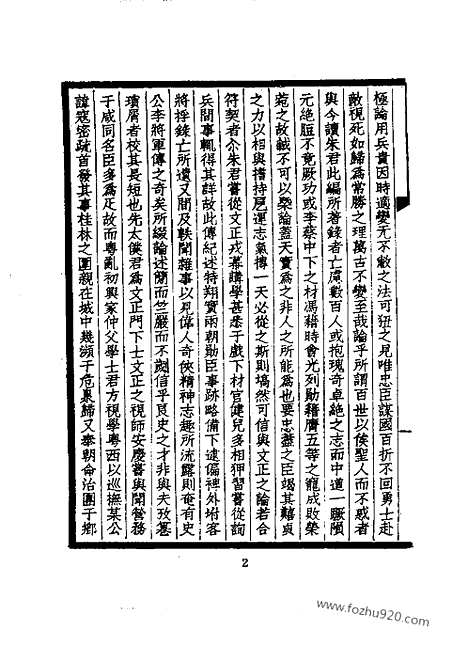 極論用兵貴因時適變无不敝之法可狃之見唯忠臣謀國百折不回勇士赴
敵視死如歸爲常勝之理萬古不變至哉論乎所謂百世以俟聖人而不惑者
與今讀朱君此編所著錄者亡慮數百人或抱瑰奇卓絶之志而中道一蹶隕
元絶脰不竟厥功或李蔡中下之材馮藉時會光列勛籍膺五等之寵成敗榮
菀之故誠不可以槩論蓋天實爲之非人之所能爲也要忠藎之臣竭其囏貞
之力以相與搘持㞃運志氣摶一天必從之斯則塙然可信與文正之論若合
符契者亦朱君嘗從文正戎幕講學甚悉于戲下材官健兒多相狎習嘗從詢
兵間事輒得其詳故此傳紀述特翔實兩朝勛臣事跡略備下逮偏裨外坿客
將捊錄亡所遺又間及軼聞雜事以見偉人奇俠精神志趣所流露則奄有史
公李將軍傳之奇矣所綴論述簡而竺嚴而不劌信乎良史之才非與夫孜綦
瑣屑者校其長短也先太僕君爲文正門下士文正之視師安慶嘗與聞營務
于咸同名臣多爲雅故而粵亂初興家仲父學士君方視學粵西以巡撫某公
諱寇密疏首發其事桂林之圍親在城中幾瀕于危㬥歸又奉朝命治團于鄉
2
www.fozhu920.com